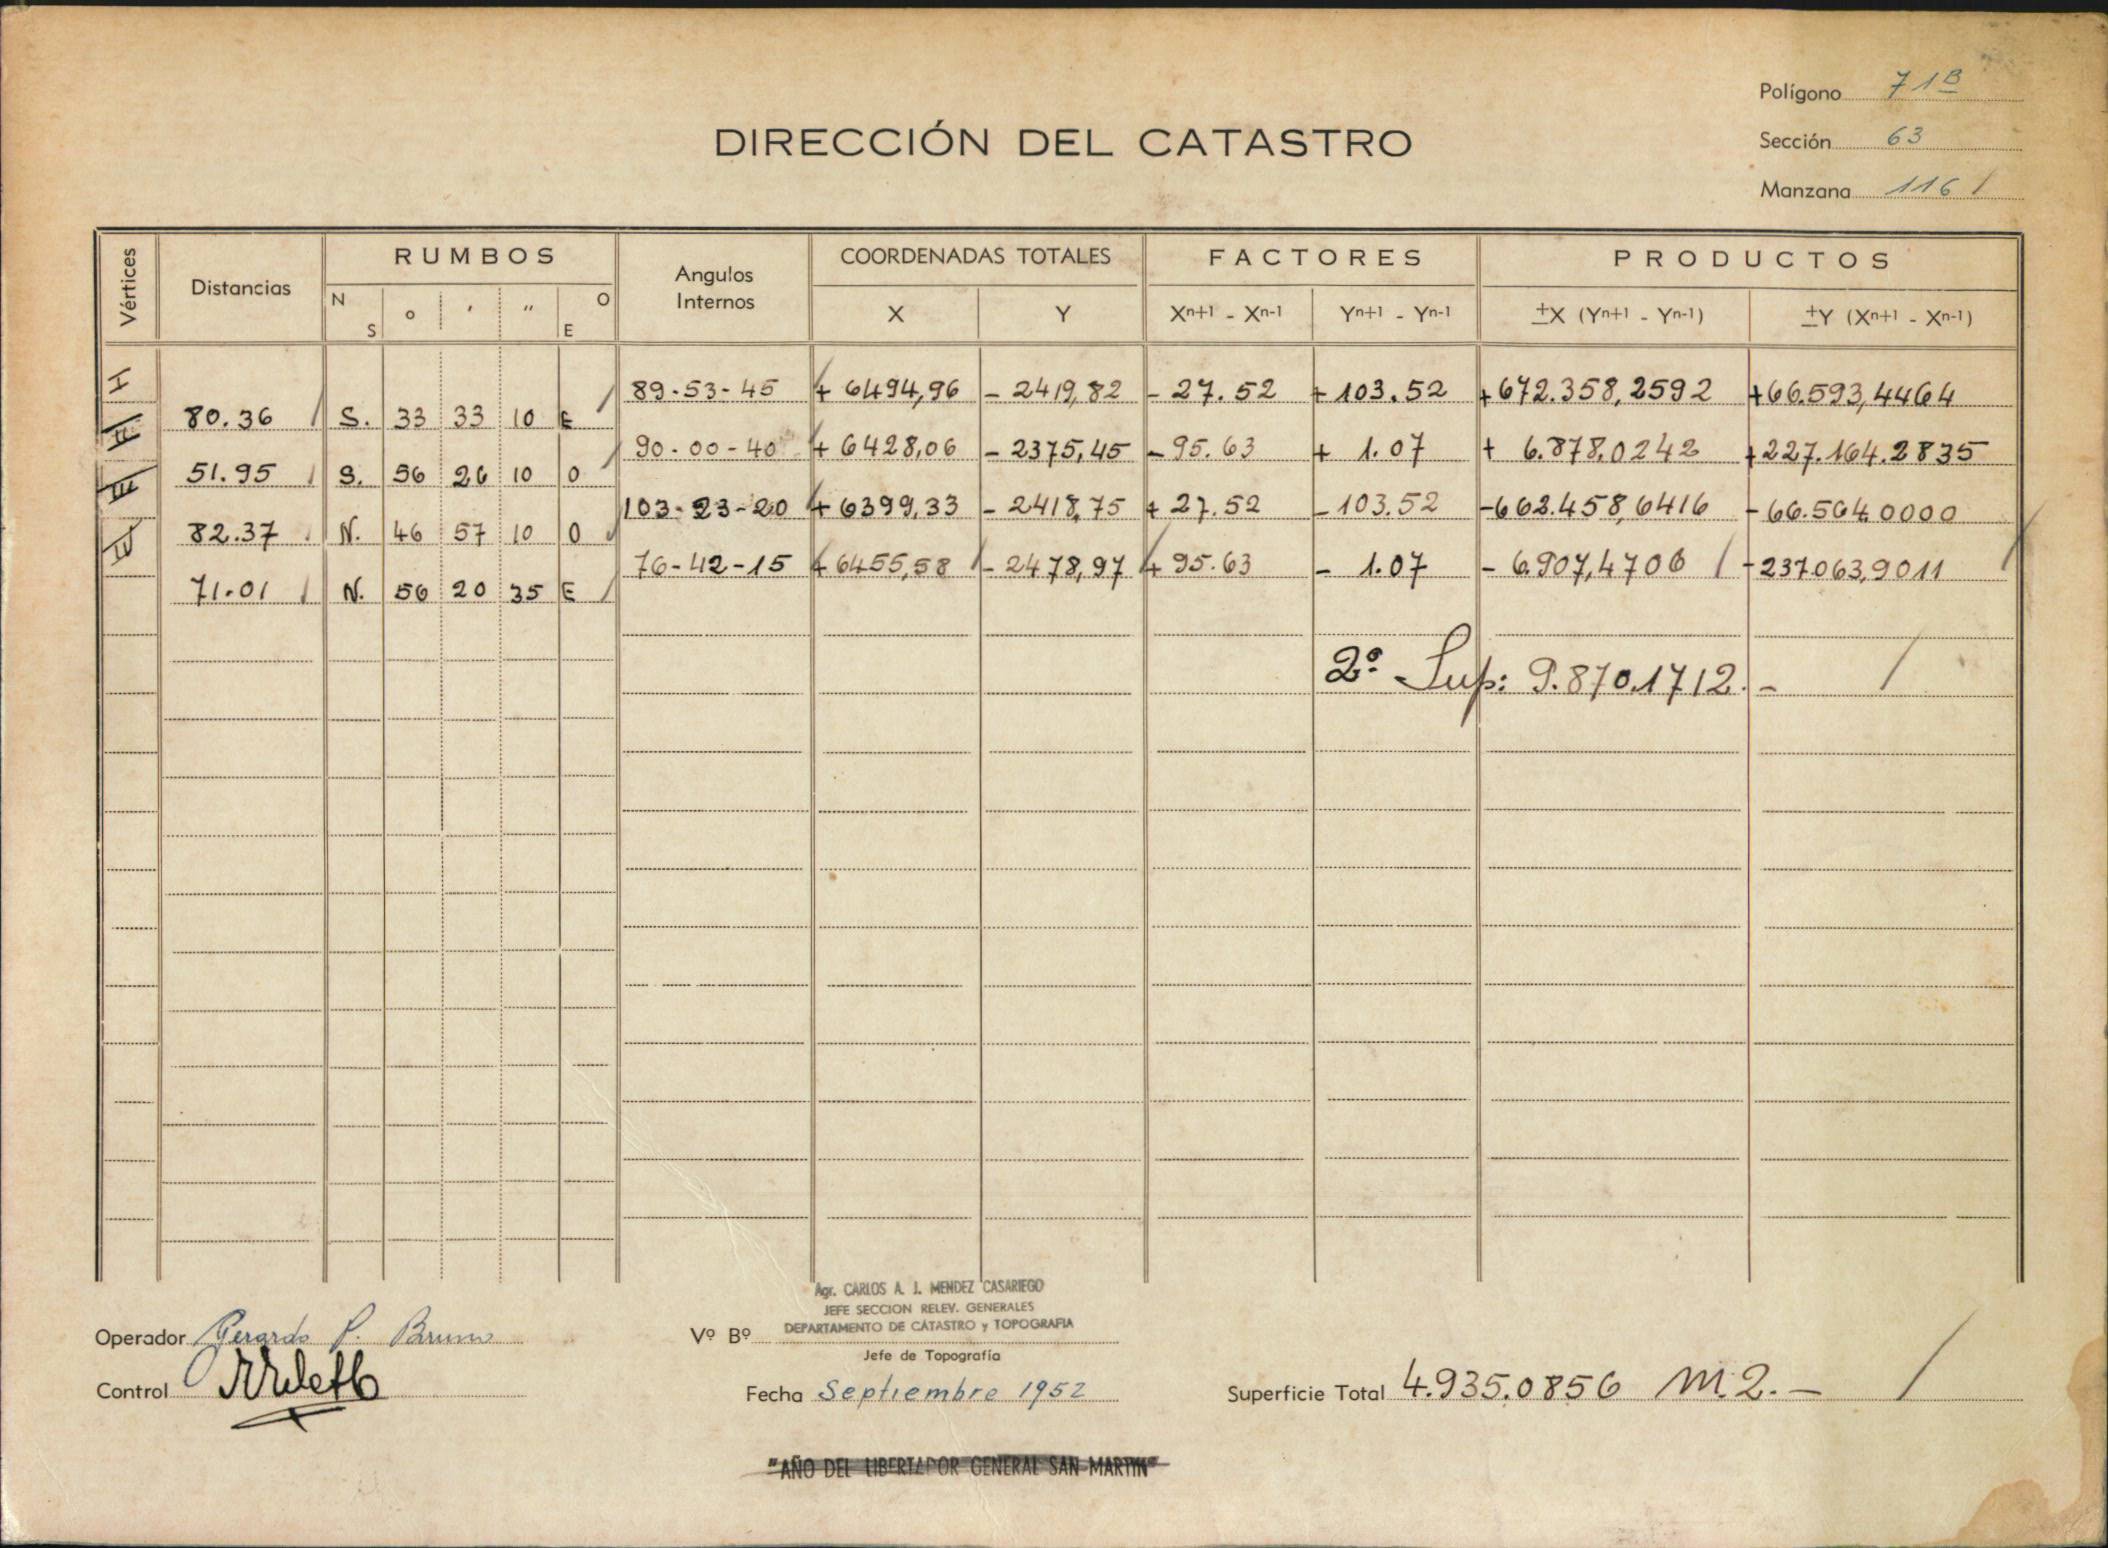 Polígono 71B
DIRECCIÓN DEL CATASTRO
Sección 63
Manzana 116
Vértices Distancias RUMBOS Angulos Internos COORDENADAS TOTALES FACTORES PRODUCTOS
N S ° ' '' O E X Y Xn+1 - Xn-1 Yn+1 - Yn-1 ±X (Yn+1 - Yn-1) ±Y (Xn+1 - Xn-1)
I 89-53-45 + 6494,96 - 2419,82 - 27.52 + 103.52 +672.358,2592 +66.593,4464
80.36 S. 33 33 10 E
II 90-00-40 + 6428,06 - 2375,45 - 95.63 + 1.07 + 6.878,0242 +227.164.2835
51.95 S. 56 26 10 O
III 103-23-20 + 6399,33 - 2418,75 + 27.52 - 103.52 -662.458,6416 - 66.564.0000
82.37 N. 46 57 10 O
IV 76-42-15 + 6455,58 - 2478,97 + 95.63 - 1.07 - 6.907,4706 -237.063,9011
71.01 N. 56 20 35 E
2ª Sup: 9.870.1712.-
Agr. CARLOS A. J. MENDEZ CASARIEGO
JEFE SECCION RELEV. GENERALES
DEPARTAMENTO DE CATASTRO y TOPOGRAFIA
Operador Gerardo P. Bruno
Vº Bº
Jefe de Topografía
Control
Fecha Septiembre 1952
Superficie Total 4.935.0856 M.2.-
"AÑO DEL LIBERTADOR GENERAL SAN MARTIN"